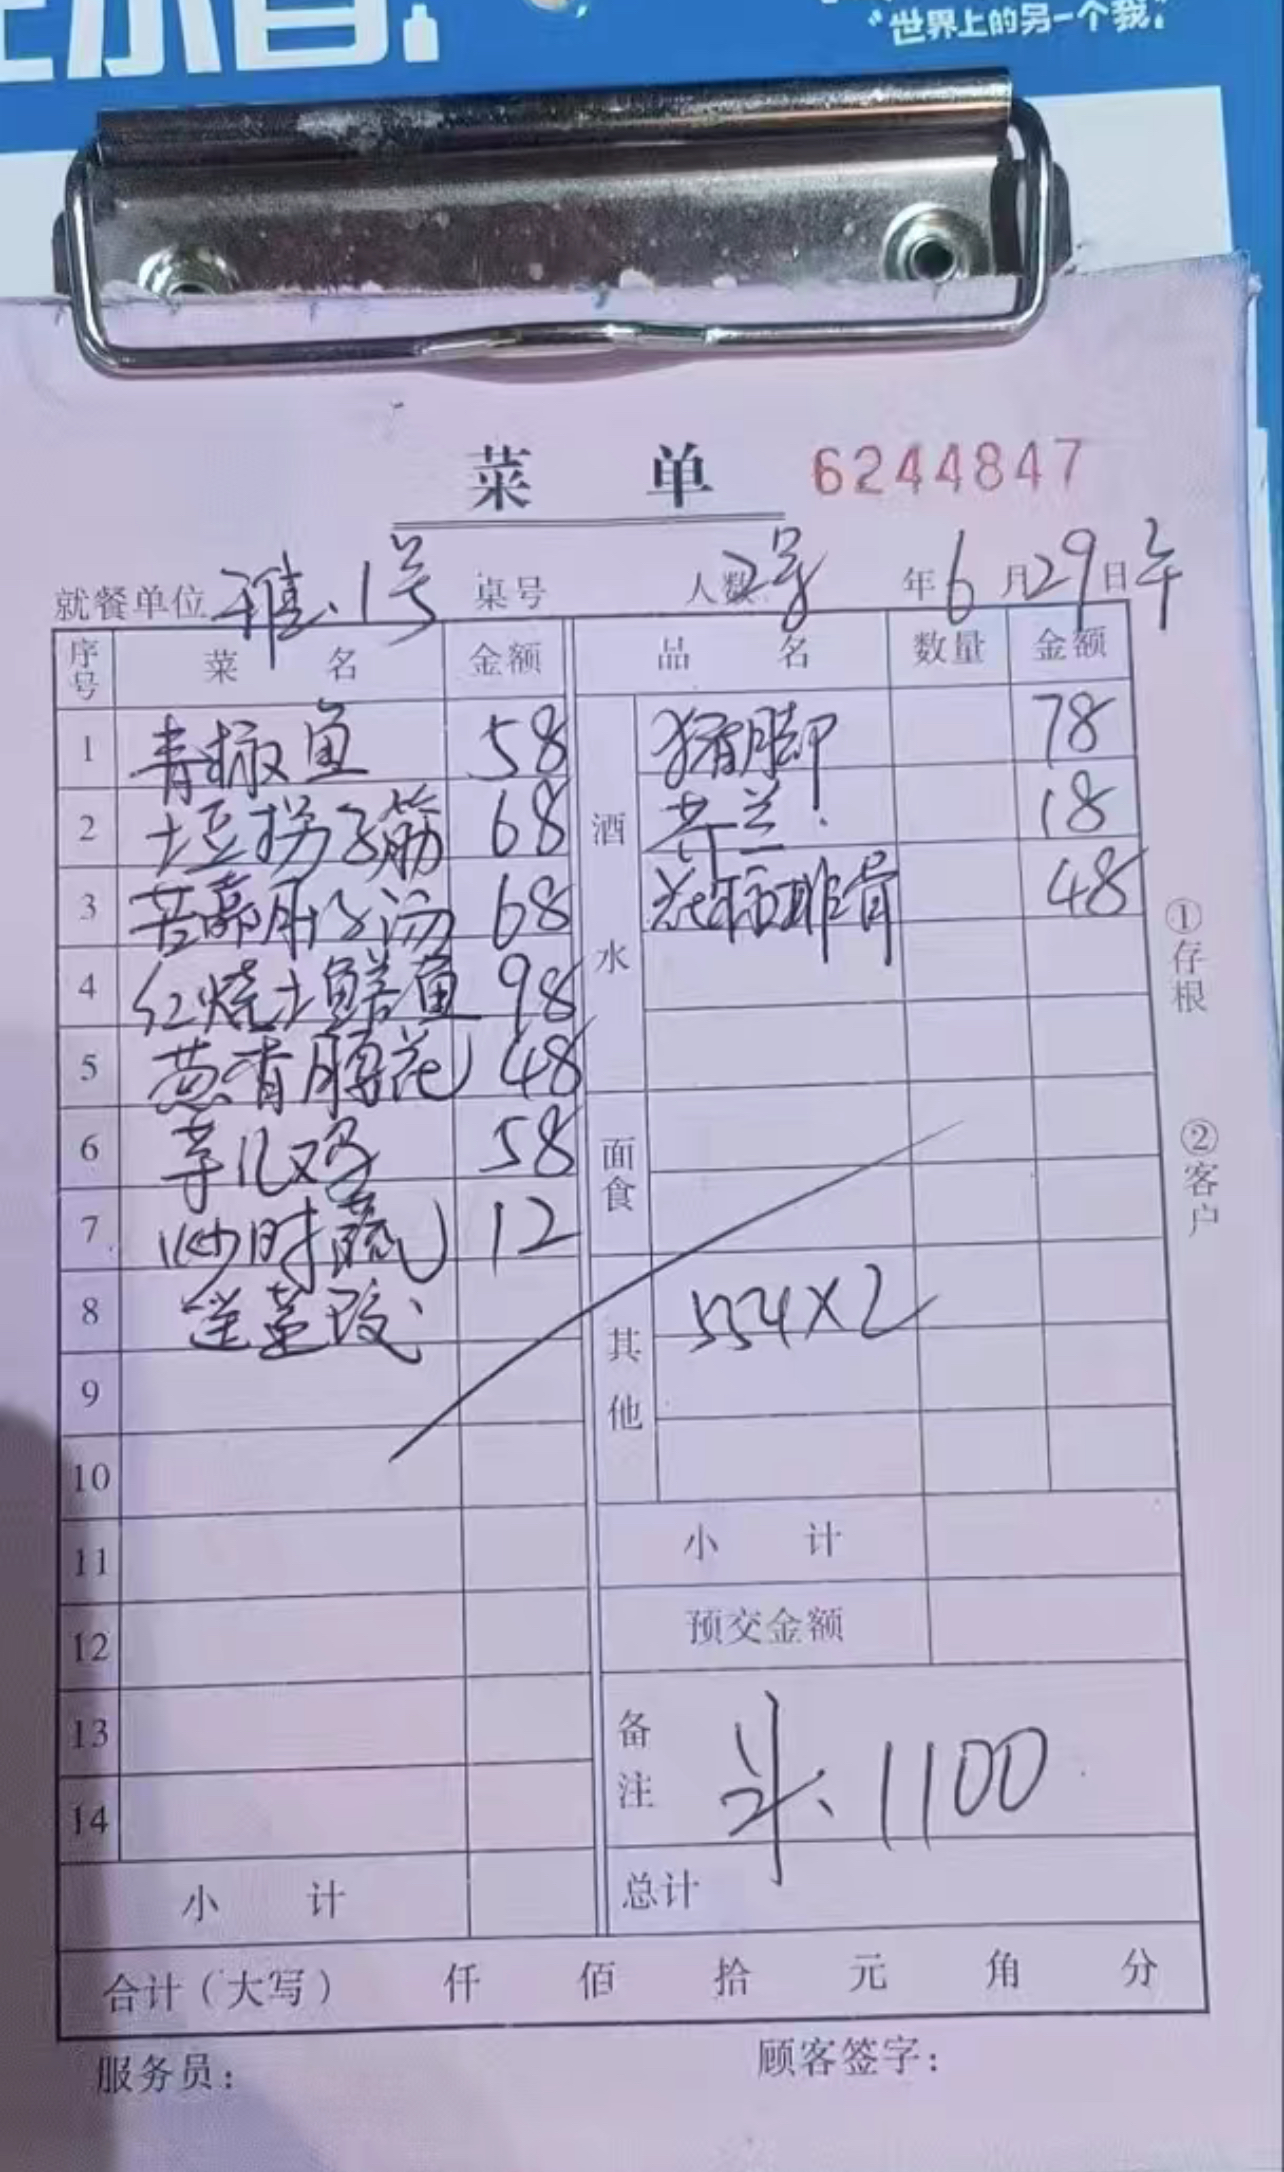 "世界上的另一个我"
菜 单 6244847
就餐单位 雅.1号 桌号 人数 2号 年6月29日午
序号 菜 名 金额 品 名 数量 金额
1 青椒鱼 58 酒水 猪脚 78
2 土豆拐子筋 68 芥兰 18
3 苦藠肚子汤 68 花椒排骨 48
4 红烧土鳝鱼 98
5 葱香腰花 48
6 芋儿鸡 58 面食
7 炒时蔬 12
8 送茎玫 其他 554X2
9
10
11 小 计
12 预交金额
13 备注 斗、1100
14
小 计 总计
合计（大写） 仟 佰 拾 元 角 分
服务员： 顾客签字：
①存根
②客户